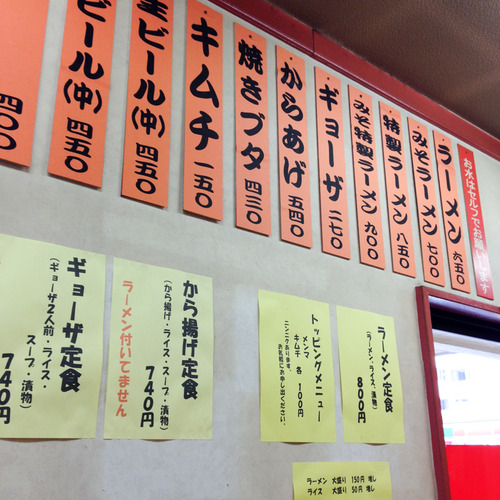 お水はセルフでお願いします
ラーメン 六五〇
みそラーメン 七〇〇
特製ラーメン 八五〇
みそ特製ラーメン 九〇〇
ギョーザ 二七〇
からあげ 五四〇
焼きブタ 四三〇
キムチ 一五〇
生ビール(中) 四五〇
ビール(中) 四五〇
四〇〇
ラーメン定食
(ラーメン、ライス、漬物)
800円
トッピングメニュー
メンマ
キムチ 各 100円
ニンニクあります。
お気軽にお申し出ください。
から揚げ定食
(から揚げ・ライス・スープ・漬物)
740円
ラーメン付いてません
ギョーザ定食
(ギョーザ2人前・ライス・
スープ・漬物)
740円
ラーメン 大盛り 150円 増し
ライス 大盛り 50円 増し